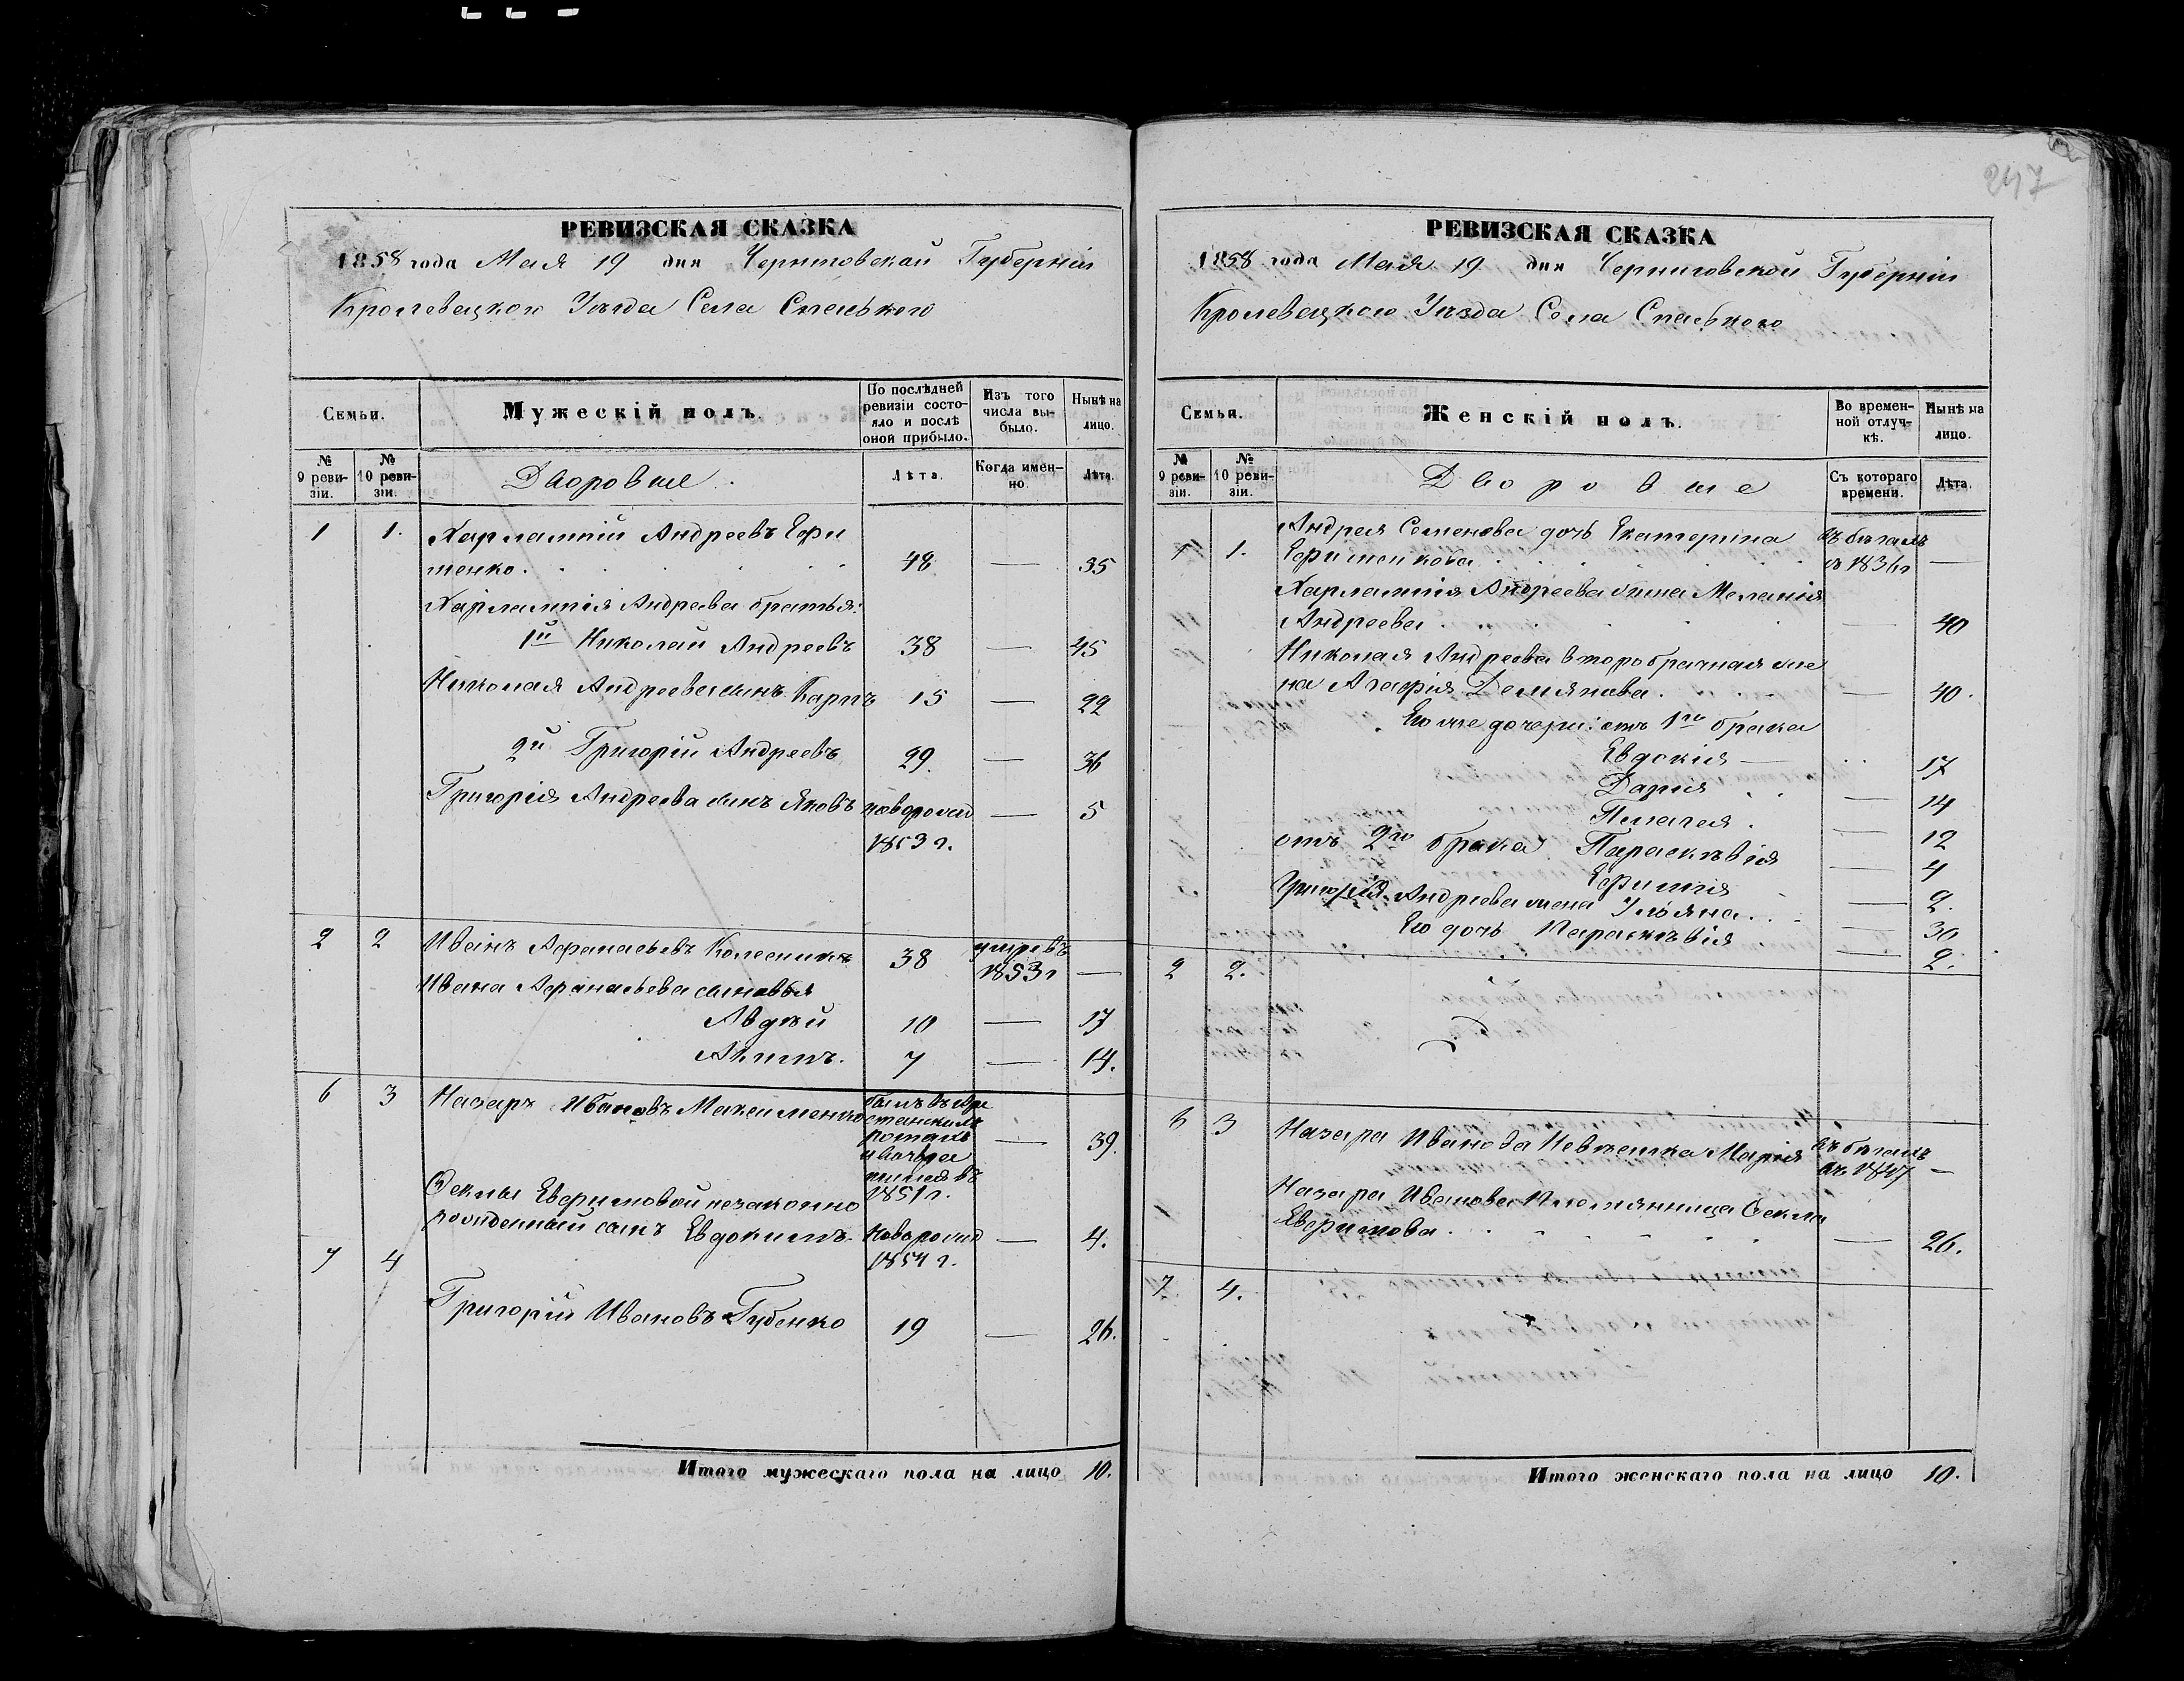 247
РЕВИЗСКАЯ СКАЗКА
1858 года Мая 19 дня Черниговской Губерніи
Кролевецкого Уѣзда Села Спаського
Семьи.
Мужескій полъ.
По послѣдней ревизіи состояло и послѣ оной прибыло.
Изъ того числа выбыло.
Нынѣ на лицо.
№ 9 ревизіи.
№ 10 ревизіи.
Дворовые.
Лѣта.
Когда именно.
Лѣта.
1 1. Харлампій Андреевъ Ефи
менко. 48 — 35
Харлампія Андреева братья:
1й Николай Андреевъ 38 — 45
Николая Андреева сынъ Карпъ 15 — 22
2й Григорій Андреевъ 29. — 36
Григорія Андреева сынъ Яковъ новорожд — 5
1853 г.
2 2 Иванъ Афанасьевъ Колесникъ 38 умре въ
1853 г —
Ивана Афанасьева сыновья
Авдѣй 10 — 17
Акимъ. 7 — 14.
6 3 Назаръ Ивановъ Максименко былъ въ аре
станскихъ
ротахъ — 39.
и возвра
тился въ
1851 г.
Феклы Евфимовой незаконно
рожденный сынъ Евдокимъ. новорожд — 4.
1854 г.
7 4
Григорій Ивановъ Губенко 19 — 26.
Итого мужескаго пола на лицо 10.
РЕВИЗСКАЯ СКАЗКА
1858 года Мая 19 дня Черниговской Губерніи
Кролевецкого Уѣзда Села Спаського
Семьи.
Женскій полъ.
Во временной отлучкѣ.
Нынѣ на лицо.
№ 9 ревизіи.
№ 10 ревизіи.
Дворовые
Съ котораго времени.
Лѣта.
1 1. Андрея Семенова дочь Екатерина въ бѣгахъ
Ефименкова съ 1836 г —
Харлампія Андреева жена Меланія
Андреева — 40
Николая Андреева второбрачная же
на Агафія Демянова. — 40.
Его же дочери: отъ 1го брака
Евдокія — 17
Дарія — 14
Пелагея. — 12
отъ 2го брака Параскѣвія — 4
Ефимія — 2.
Григорія Андреева жена Ульяна. — 30
Его дочь Параскѣвія — 2.
2 2.
6 3 Назара Иванова Невѣстка Марія въ бѣгахъ
въ 1847 —
Назара Иванова Племянница Фекла
Евфимова. — 26.
7 4.
Итого женскаго пола на лицо 10.